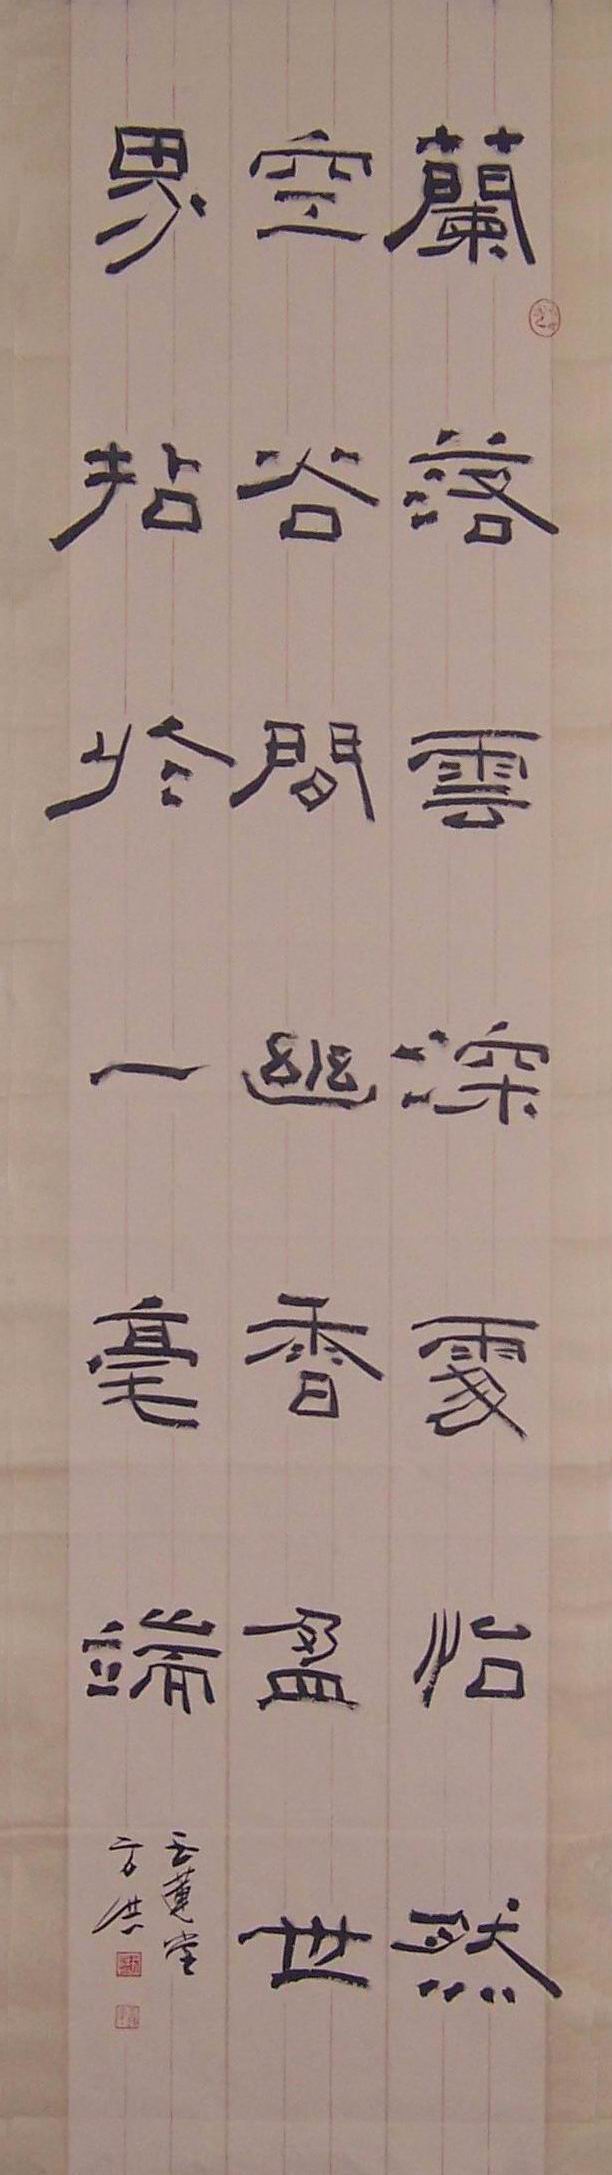 蘭落雲深處怡然
空谷間幽香盈世
界拈於一毫端
玉蓮堂
方洪